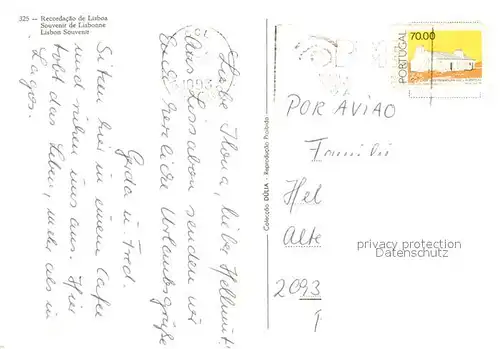 325 - Recordação de Lisboa
Souvenir de Lisbonne
Lisbon Souvenir
Liebe Ilona, lieber Hellmut!
Aus Lissabon senden wir
Euch herzliche Urlaubsgrüße
Gerda u. Fred.
Sitzen hier in einem Cafee
und ruhen uns aus. Hier
tobt das Leben, mehr als in
Lagos.
Colecção DÚLIA - Reprodução Proibida
1993
70.00
PORTUGAL
POR AVIAO
Familie
Hel
Alte
2093
privacy protection
Datenschutz